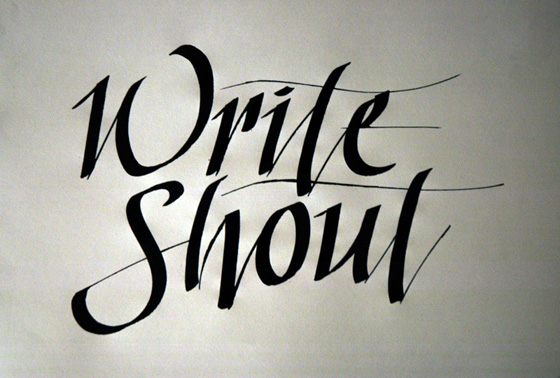 Write
Shout